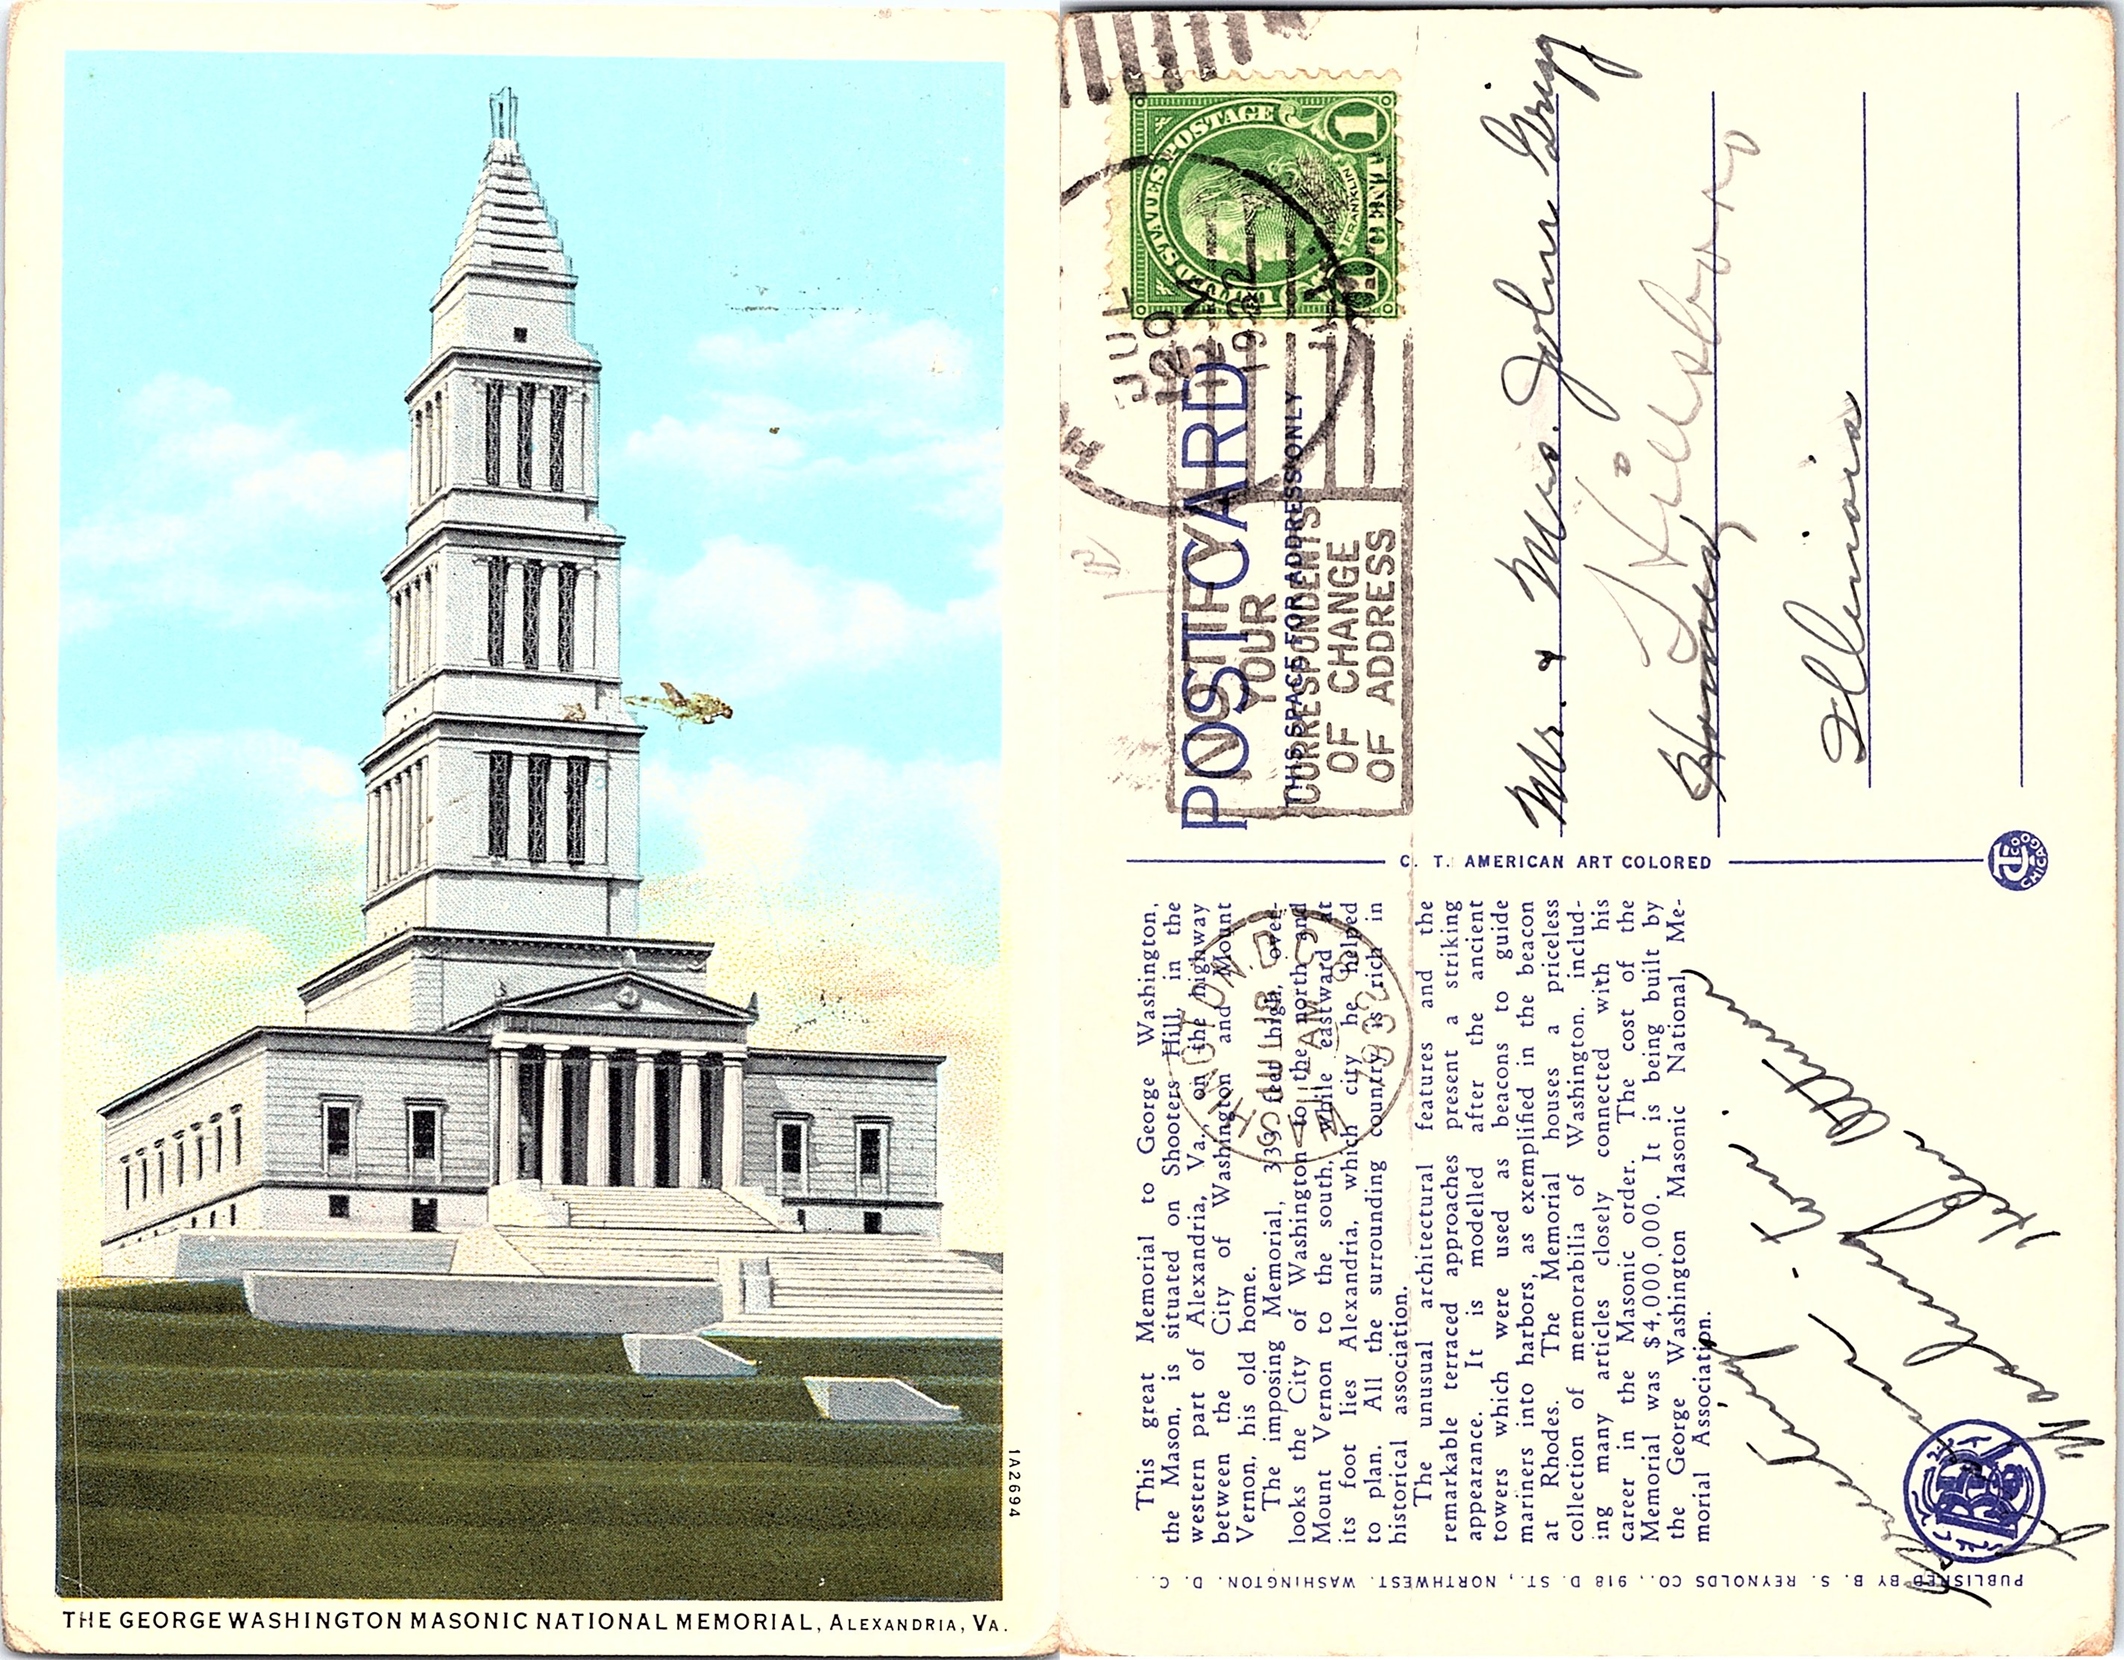 THE GEORGE WASHINGTON MASONIC NATIONAL MEMORIAL, ALEXANDRIA, VA.
1A2694
UNITED STATES POSTAGE
FRANKLIN
1 CENT 1
JUL
1932
POST CARD
THIS SPACE FOR ADDRESS ONLY
NOTIFY
YOUR
CORRESPONDENTS
OF CHANGE
OF ADDRESS
Mr. & Mrs. John Grigg
Hillsboro
Illinois
C. T. AMERICAN ART COLORED
CHICAGO
This great Memorial to George Washington,
the Mason, is situated on Shooters Hill, in the
western part of Alexandria, Va., on the highway
between the City of Washington and Mount
Vernon, his old home.
The imposing Memorial, 339 feet high, over-
looks the City of Washington to the north and
Mount Vernon to the south, while eastward at
its foot lies Alexandria, which city he helped
to plan. All the surrounding country is rich in
historical association.
The unusual architectural features and the
remarkable terraced approaches present a striking
appearance. It is modelled after the ancient
towers which were used as beacons to guide
mariners into harbors, as exemplified in the beacon
at Rhodes. The Memorial houses a priceless
collection of memorabilia of Washington, includ-
ing many articles closely connected with his
career in the Masonic order. The cost of the
Memorial was $4,000,000. It is being built by
the George Washington Masonic National Me-
morial Association.
1932
Helen
PUBLISHED BY B. S. REYNOLDS CO., 918 D. ST., NORTHWEST, WASHINGTON, D. C.